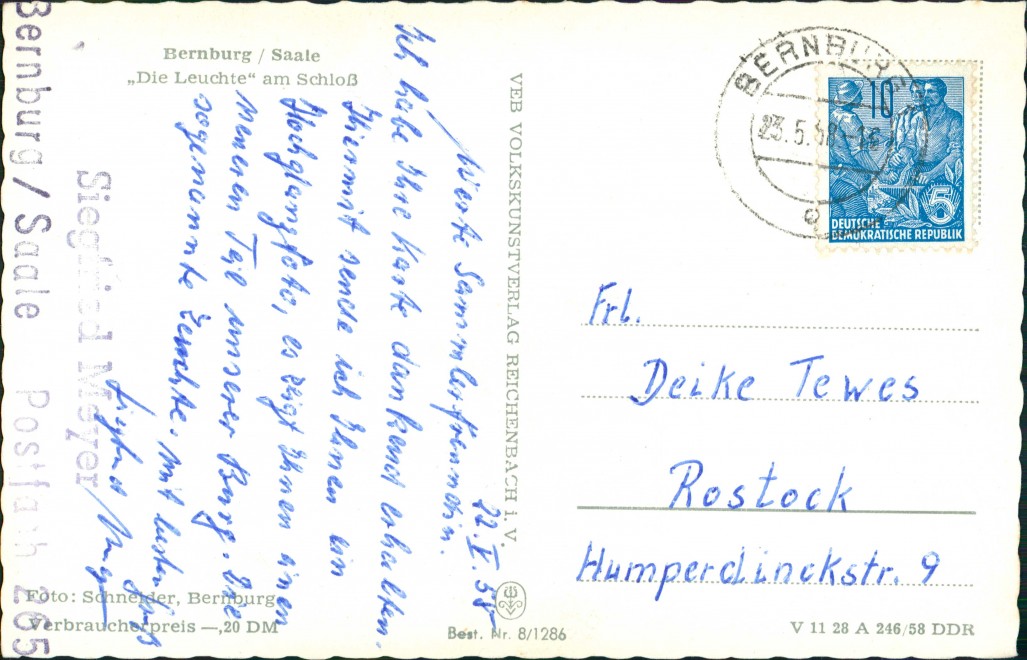 Bernburg / Saale
„Die Leuchte“ am Schloß
22. V. 58
Werte Sammlerfreundin.
Ich habe Ihre Karte dankend erhalten.
Hiermit sende ich Ihnen ein
Hochglanzfoto, es zeigt Ihnen einen
kleinen Teil unserer Burg. Die
sogenannte Leuchte. Mit besten Gruß
Siegfried Meyer
Siegfried Meyer
Bernburg / Saale Postfach 265
Foto: Schneider, Bernburg
Verbraucherpreis —,20 DM
VEB VOLKSKUNSTVERLAG REICHENBACH i. V.
Best. Nr. 8/1286
BERNBURG
23.5.58
10
5
DEUTSCHE
DEMOKRATISCHE REPUBLIK
Frl.
Deike Tewes
Rostock
Humperdinckstr. 9
V 11 28 A 246/58 DDR